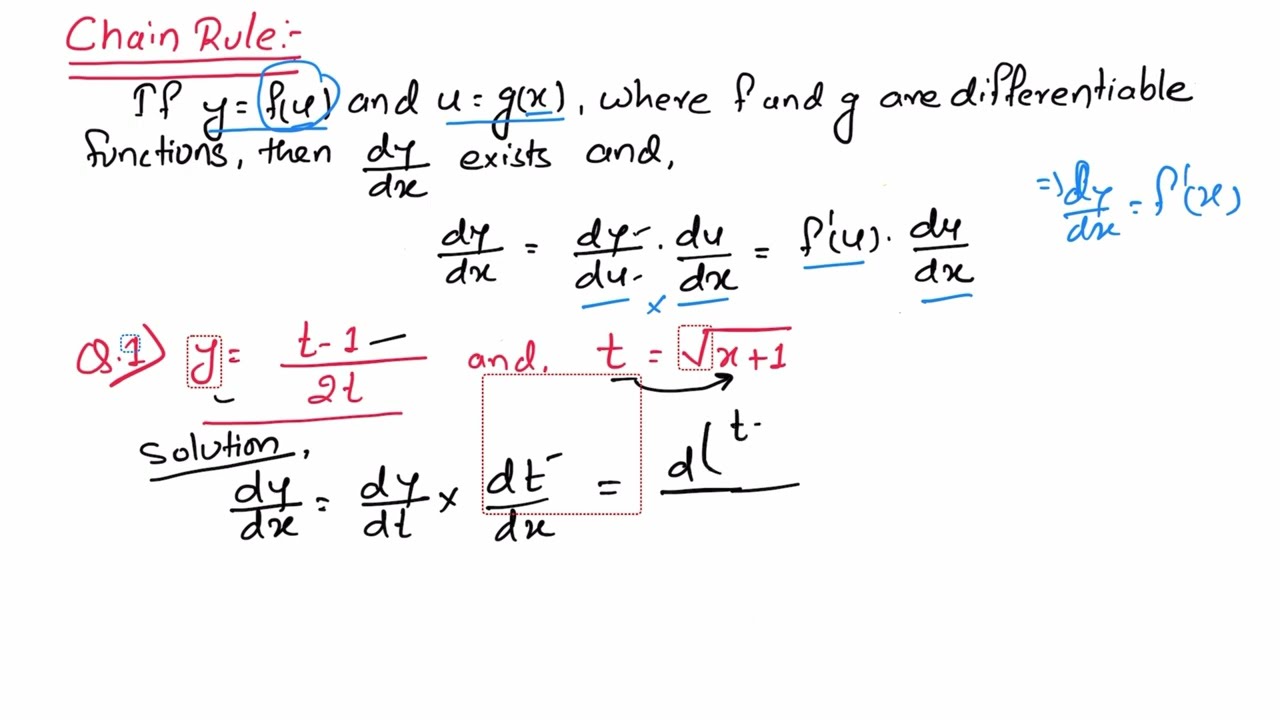 Chain Rule:-
If y = f(u) and u = g(x), where f and g are differentiable
functions, then dy/dx exists and,
⇒ dy/dx = f'(x)
dy/dx = dy/du · du/dx = f'(u) · du/dx
×
Q.1) y = t-1/2t and, t = √x+1
Solution,
dy/dx = dy/dt × dt/dx = d(t-